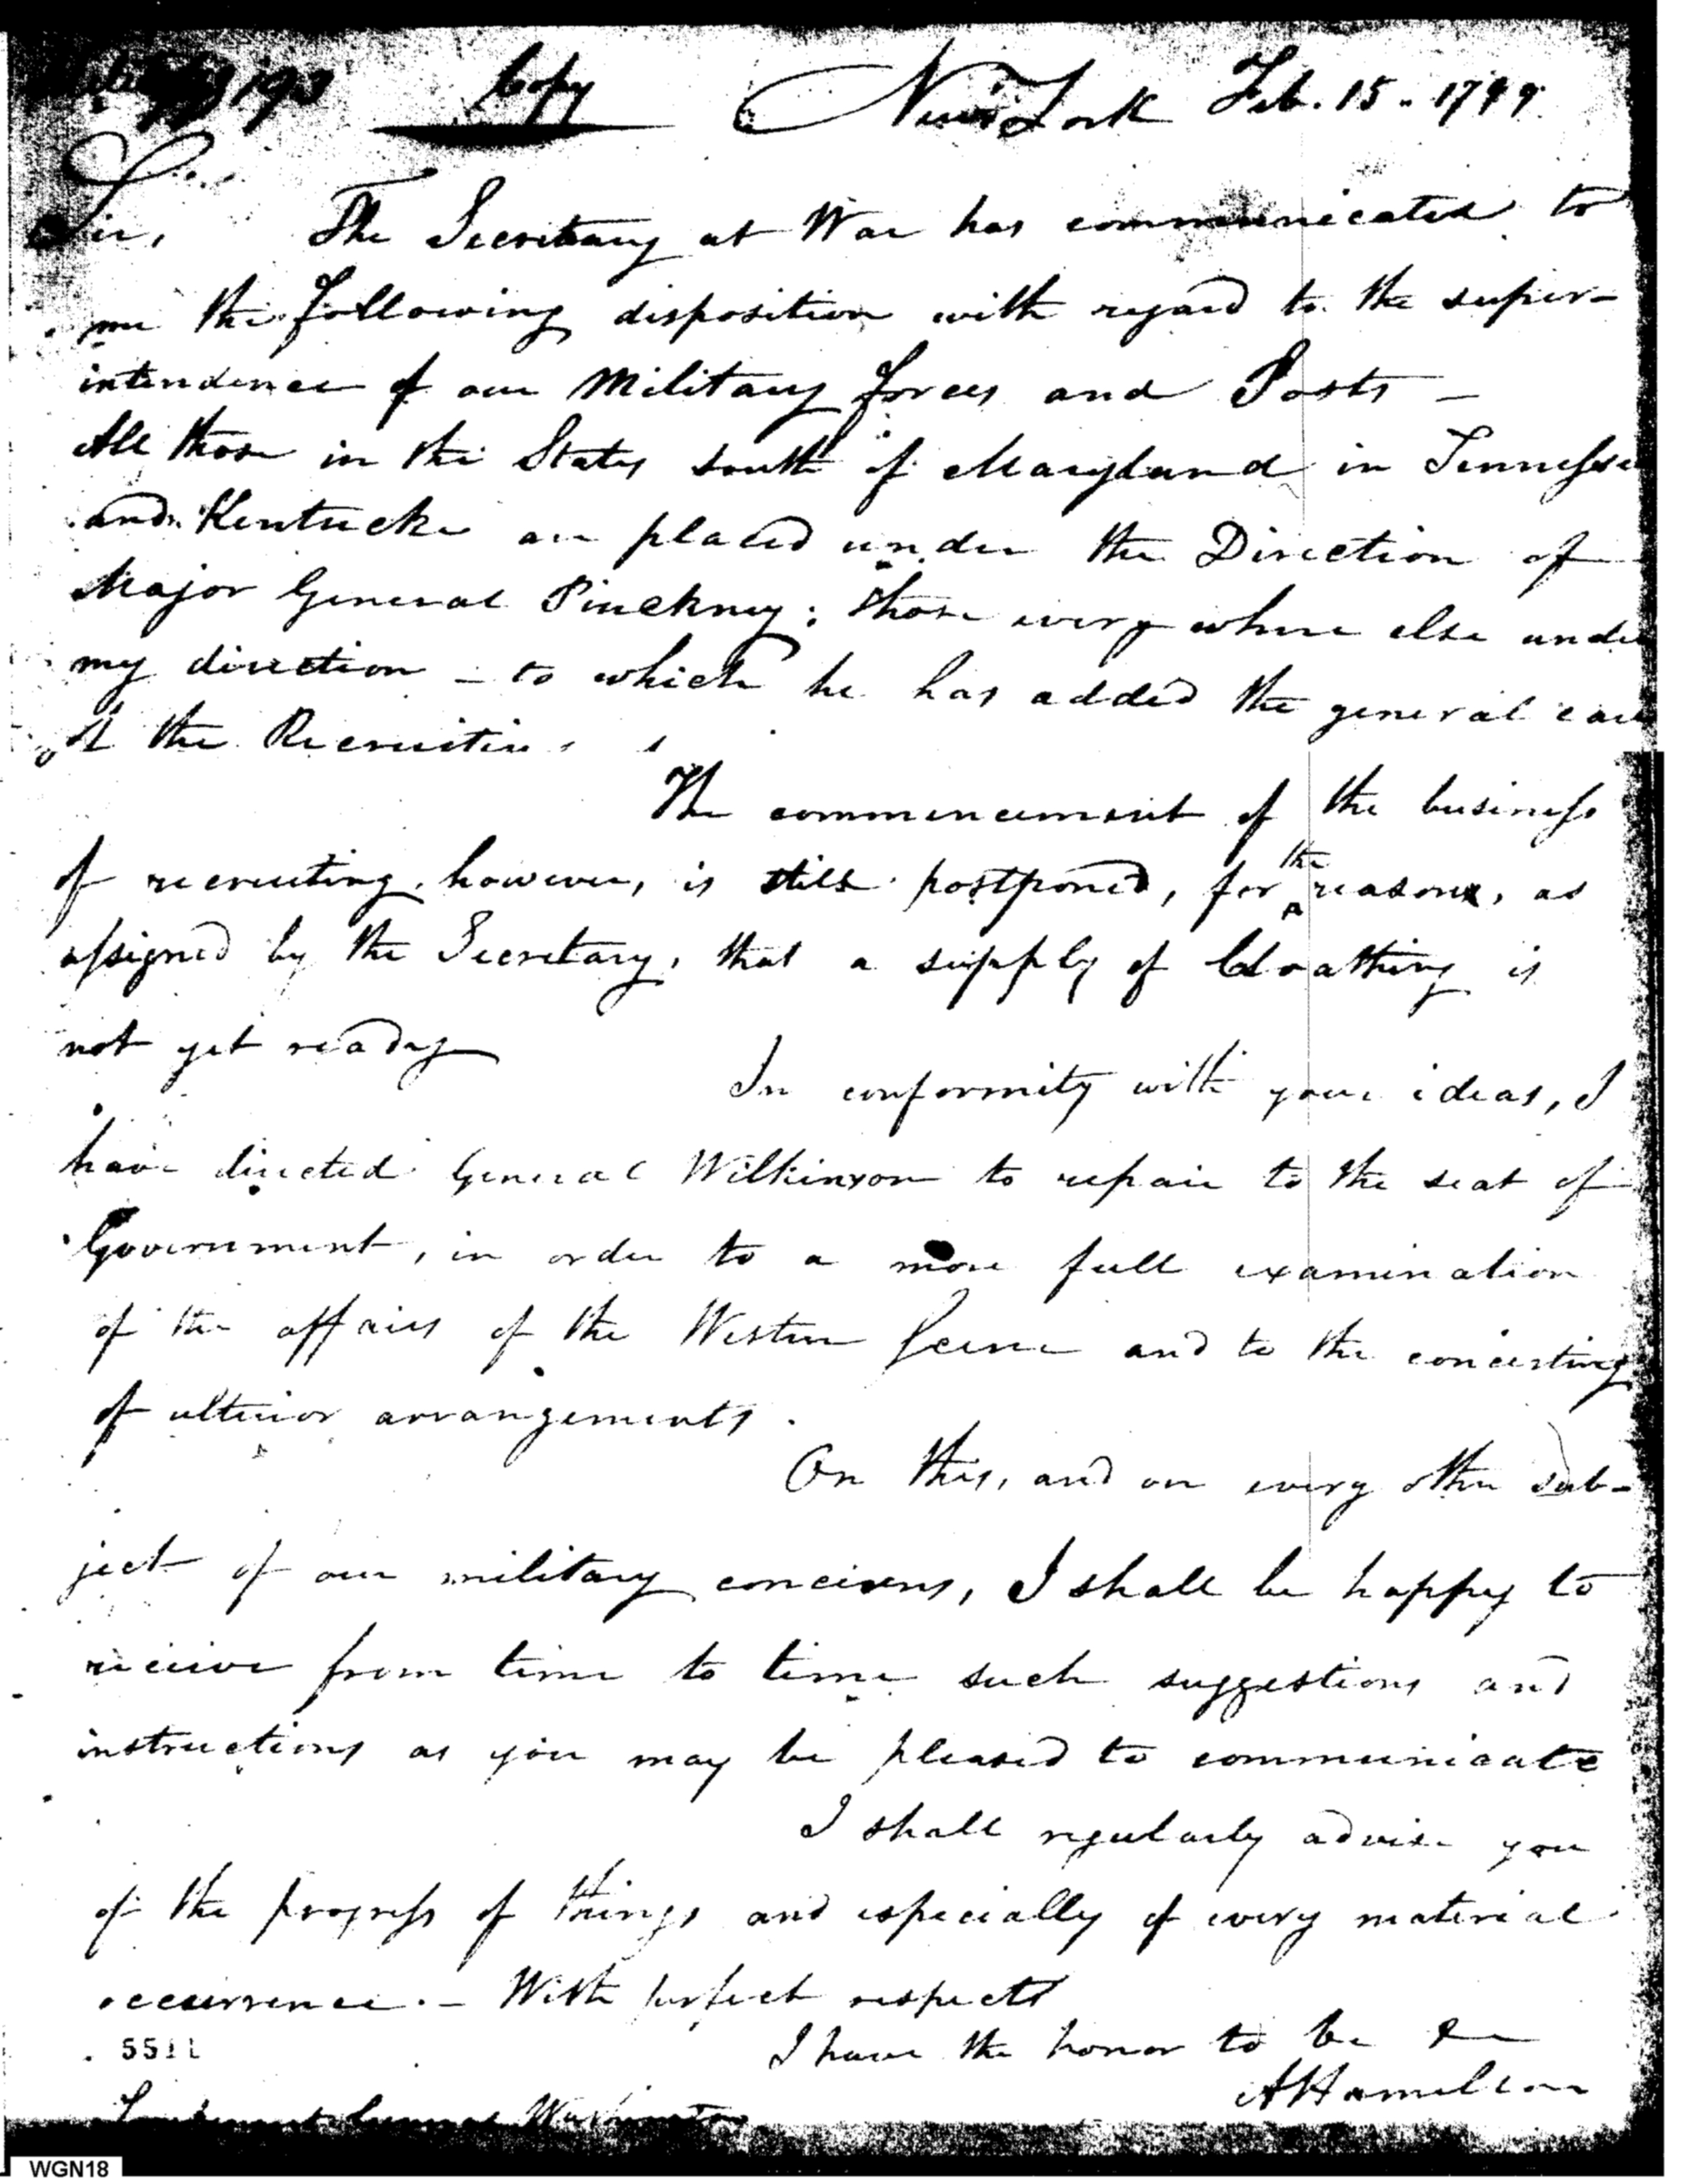 Copy New York Feb. 15. 1799.
Sir, The Secretary at War has communicated to
me the following disposition with regard to the super-
intendence of our Military forces and Posts —
All those in the States south of Maryland in Tennessee
and Kentucke are placed under the Direction of
Major General Pinckney; those every where else under
my direction — to which he has added the general care
of the Recruiting
The commencement of the business
of recruiting, however, is still postponed, for the reason, as
assigned by the Secretary, that a supply of Cloathing is
not yet ready
In conformity with your ideas, I
have directed General Wilkinson to repair to the seat of
Government, in order to a more full examination
of the affairs of the Western Scene and to the concerting
of ulterior arrangements.
On this, and on every other sub-
ject of our military concerns, I shall be happy to
receive from time to time such suggestions and
instructions as you may be pleased to communicate
I shall regularly advise you
of the progress of things and especially of every material
occurrence. — With perfect respect
I have the honor to be &c
AHamilton
5511
Lieutenant General Washington
WGN18